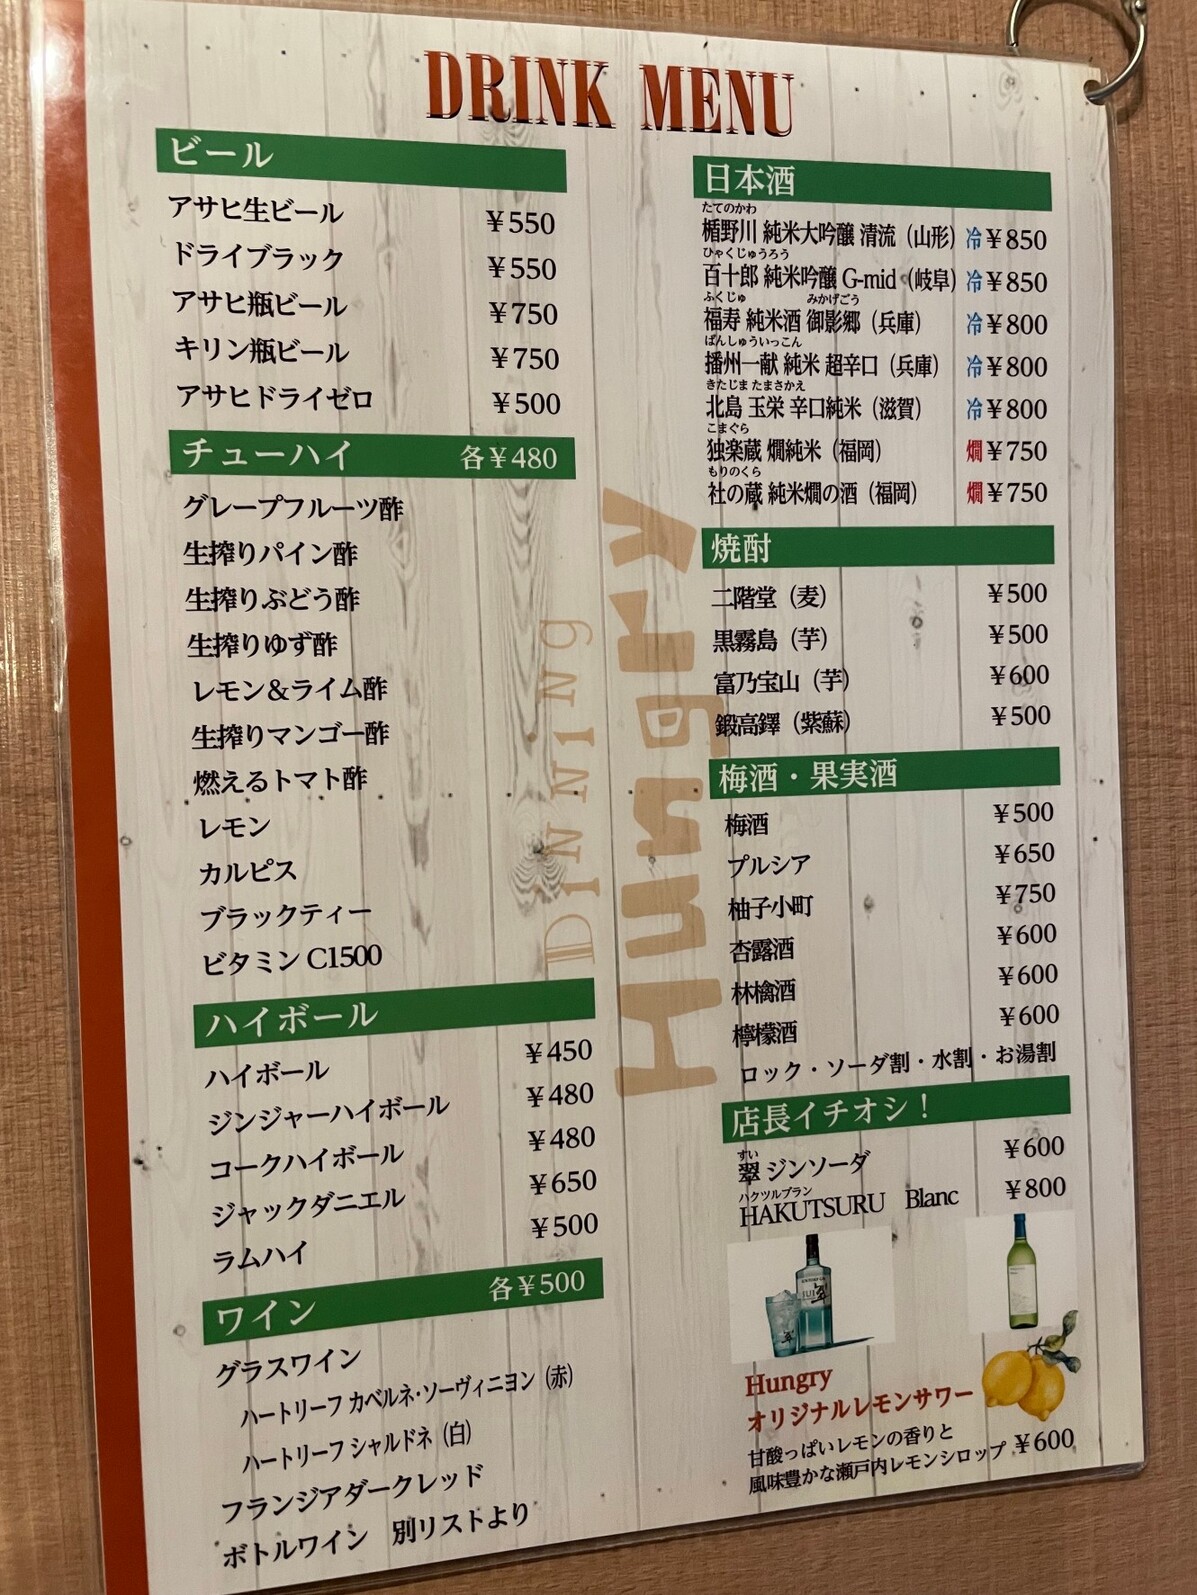 DRINK MENU
ビール
アサヒ生ビール ¥550
ドライブラック ¥550
アサヒ瓶ビール ¥750
キリン瓶ビール ¥750
アサヒドライゼロ ¥500
チューハイ 各¥480
グレープフルーツ酢
生搾りパイン酢
生搾りぶどう酢
生搾りゆず酢
レモン&ライム酢
生搾りマンゴー酢
燃えるトマト酢
レモン
カルピス
ブラックティー
ビタミンC1500
ハイボール
ハイボール ¥450
ジンジャーハイボール ¥480
コークハイボール ¥480
ジャックダニエル ¥650
ラムハイ ¥500
ワイン 各¥500
グラスワイン
ハートリーフ カベルネ・ソーヴィニヨン（赤）
ハートリーフ シャルドネ（白）
フランジアダークレッド
ボトルワイン 別リストより
DiNNiNg
Hungry
日本酒
たてのかわ
楯野川 純米大吟醸 清流（山形） 冷¥850
ひゃくじゅうろう
百十郎 純米吟醸 G-mid（岐阜） 冷¥850
ふくじゅ みかげごう
福寿 純米酒 御影郷（兵庫） 冷¥800
ばんしゅういっこん
播州一献 純米 超辛口（兵庫） 冷¥800
きたじま たまさかえ
北島 玉栄 辛口純米（滋賀） 冷¥800
こまぐら
独楽蔵 燗純米（福岡） 燗¥750
もりのくら
社の蔵 純米燗の酒（福岡） 燗¥750
焼酎
二階堂（麦） ¥500
黒霧島（芋） ¥500
富乃宝山（芋） ¥600
鍛高鐸（紫蘇） ¥500
梅酒・果実酒
梅酒 ¥500
プルシア ¥650
柚子小町 ¥750
杏露酒 ¥600
林檎酒 ¥600
檸檬酒 ¥600
ロック・ソーダ割・水割・お湯割
店長イチオシ！
すい
翠 ジンソーダ ¥600
ハクツルブラン
HAKUTSURU Blanc ¥800
SUI
翠
翠
Hungry
オリジナルレモンサワー
甘酸っぱいレモンの香りと
風味豊かな瀬戸内レモンシロップ ¥600